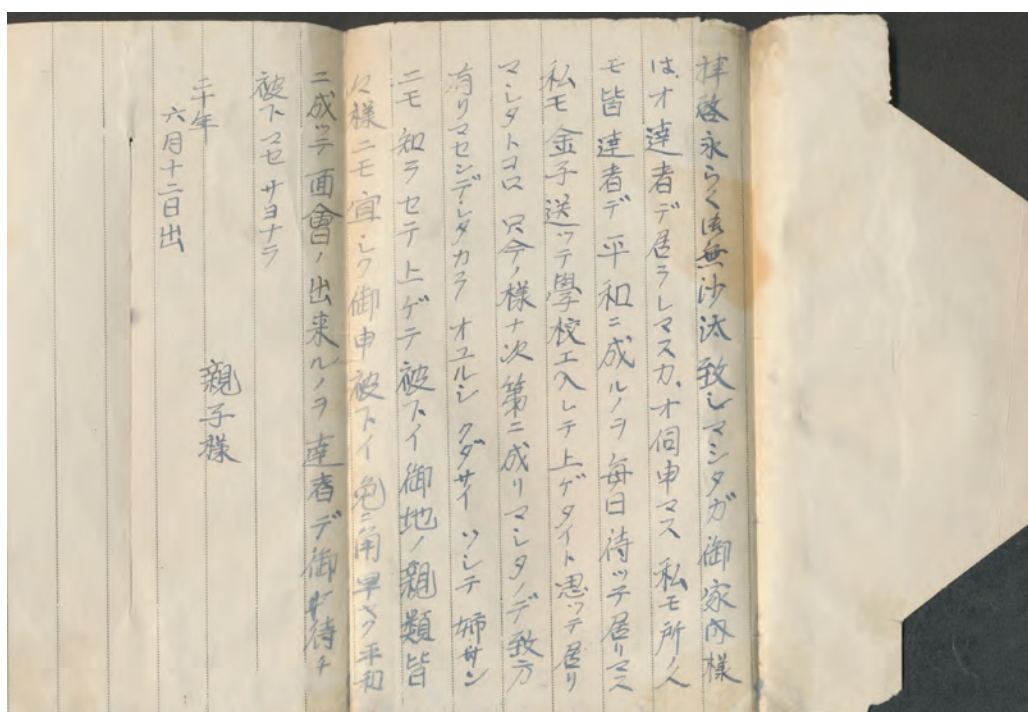 拝啓永らく御無沙汰致シマシタガ御家内様
は、オ達者デ居ラレマスカ、オ伺申マス 私モ所ノ人
モ皆達者デ 平和ニ成ルノヲ 毎日待ッテ居リマス
私モ 金子送ッテ學校エ入レテ上ゲタイト思ッテ居リ
マシタトコロ 只今ノ様ナ次第ニ成リマシタノデ致方
有リマセンデシタカラ オユルシクダサイ ソシテ 姉サン
ニモ 知ラセテ上ゲテ被下イ御地ノ親類皆
々様ニモ宜シク御申被下イ 兎ニ角早ク平和
ニ成ッテ面會ノ出来ルノヲ達者デ御待チ
被下マセ サヨナラ
二十年
六月十二日出
親子様